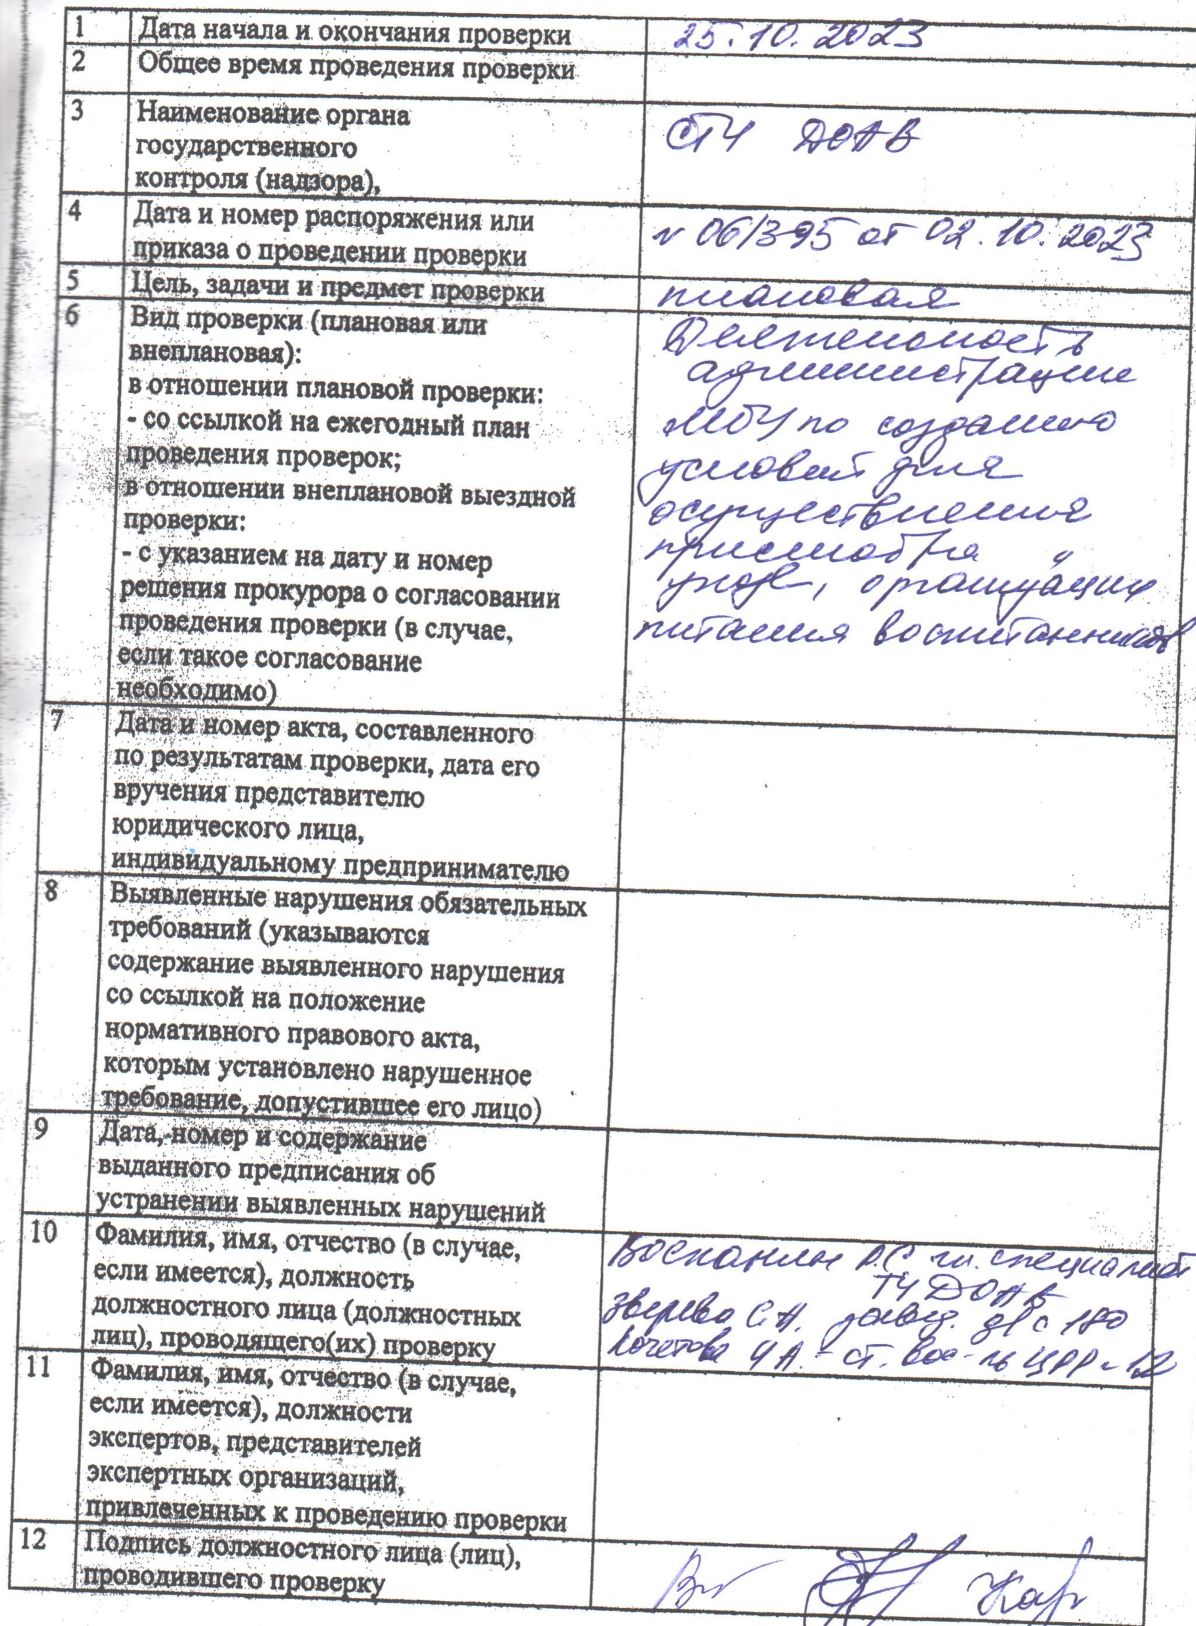 1 Дата начала и окончания проверки 25.10.2023
2 Общее время проведения проверки
3 Наименование органа
государственного
контроля (надзора),
ДОАВ
4 Дата и номер распоряжения или
приказа о проведении проверки
№ 06/395 от 02.10.2023
5 Цель, задачи и предмет проверки плановая
6 Вид проверки (плановая или
внеплановая):
в отношении плановой проверки:
- со ссылкой на ежегодный план
проведения проверок;
в отношении внеплановой выездной
проверки:
- с указанием на дату и номер
решения прокурора о согласовании
проведения проверки (в случае,
если такое согласование
необходимо)
Деятельность
администрации
МОУ по созданию
условий для
осуществления
присмотра и
ухода, организации
питания воспитанников
7 Дата и номер акта, составленного
по результатам проверки, дата его
вручения представителю
юридического лица,
индивидуальному предпринимателю
8 Выявленные нарушения обязательных
требований (указываются
содержание выявленного нарушения
со ссылкой на положение
нормативного правового акта,
которым установлено нарушенное
требование, допустившее его лицо)
9 Дата, номер и содержание
выданного предписания об
устранении выявленных нарушений
10 Фамилия, имя, отчество (в случае,
если имеется), должность
должностного лица (должностных
лиц), проводящего(их) проверку
гл. специалист
ТУ ДОАВ
Зверева С.Н. завед. д/с 180
Кочетова ст. вос-ль ЦРР
11 Фамилия, имя, отчество (в случае,
если имеется), должности
экспертов, представителей
экспертных организаций,
привлеченных к проведению проверки
12 Подпись должностного лица (лиц),
проводившего проверку